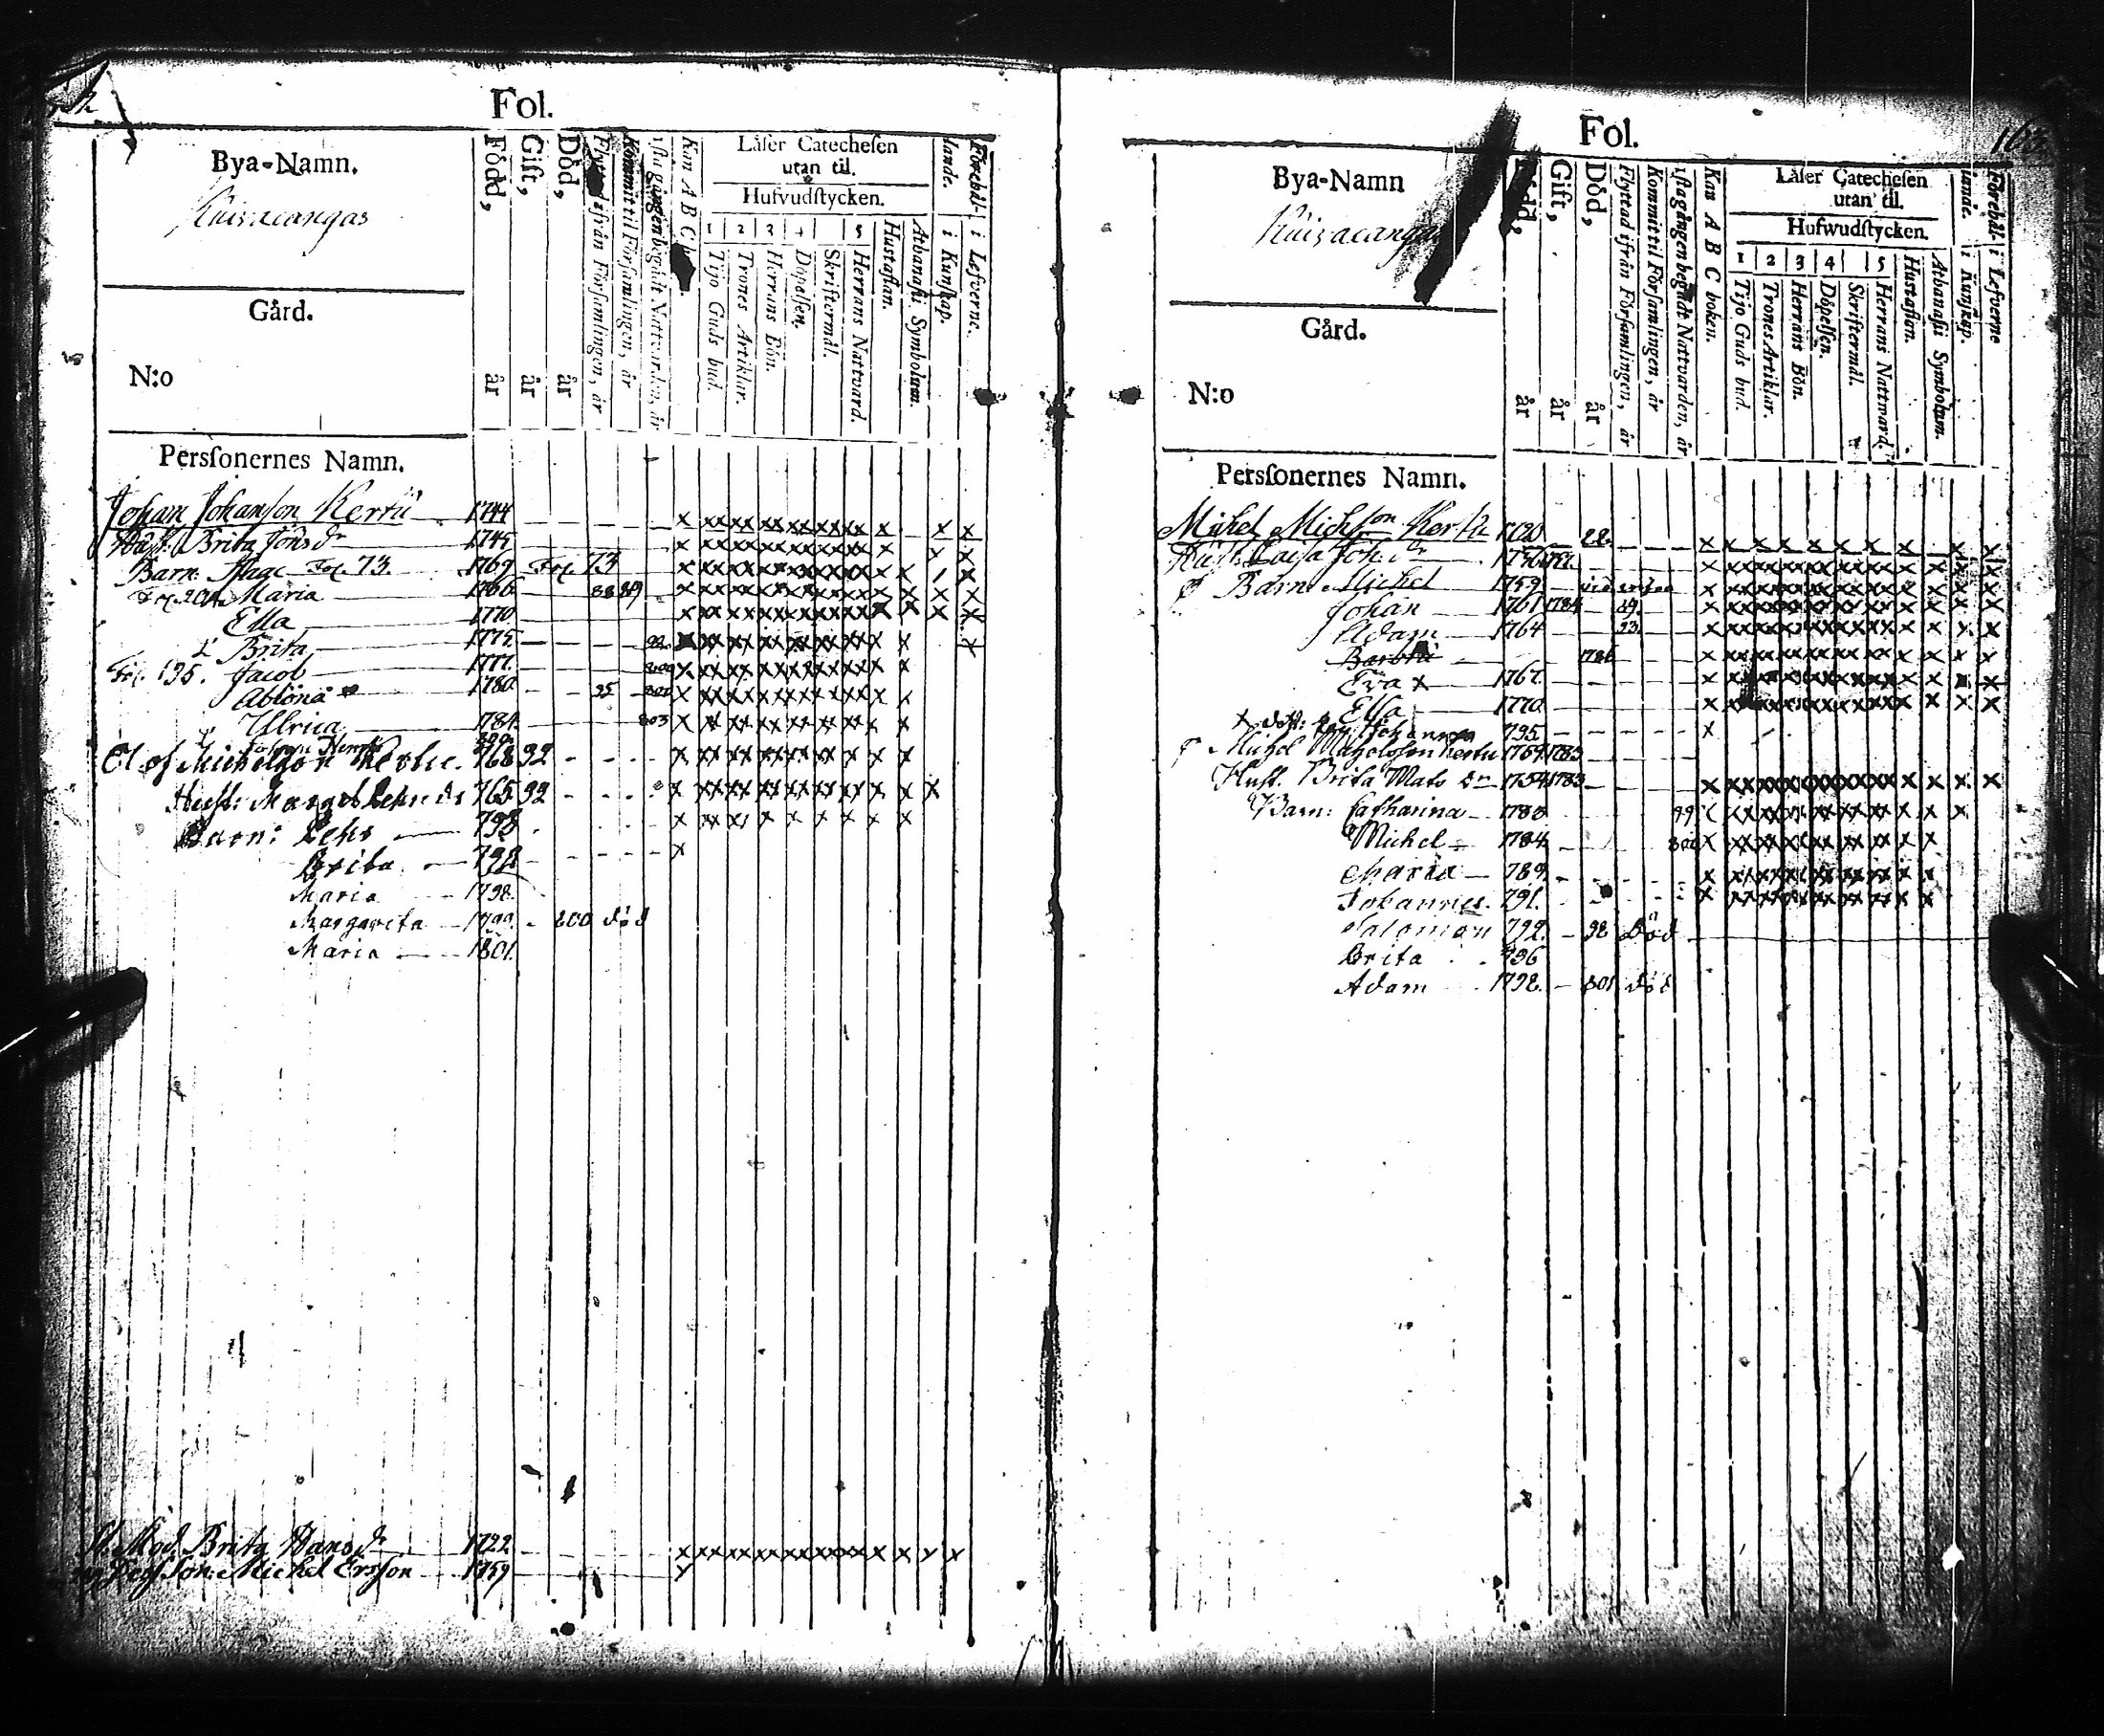 Fol.
Bya-Namn.
Kuivacangas
Gård.
N:o
Född, år
Gift, år
Död, år
Flyttad ifrån Församlingen, år
Kommit til Församlingen, år
Kan A B C
Låser Catechesen
utan til.
Hufvudstycken.
1 2 3 4 5
Tijo Guds bud.
Trones Artiklar.
Herrans Bön.
Döpelsen.
Skriftermål.
Herrans Nattvard.
Hustaflan.
Athanasii Symbolum.
Förehål-lande.
i Kunskap.
i Lefverne.
Perssonernes Namn.
Johan Johansson Kertu 1744
Hust: Brita Jons dr 1745
Barn: Fol. 73. 1769 Fol. 73
Maria 1766
Ella 1770
Brita 1775
Fol. 195. Jacob 1777
Abluna 1780 95
Ulrica 1784 803
Olof Michelson 768 92
Hust: Marget Lehrs dr 765 92
Barn: Lehr 798
Brita 798
Maria 1798
Margareta 1799 800 död
Maria 1801.
Mod. Brita Hans dr 1722
Son: Michel Ersson 1759
Fol.
Bya-Namn
Kuivacangas
Gård.
N:o
Född, år
Gift, år
Död, år
Flyttad ifrån Församlingen, år
Kommit til Församlingen, år
1sta gången begådt Nattvarden, år
Kan A B C boken.
Låser Catechesen
utan til.
Hufwudstycken.
1 2 3 4 5
Tijo Guds bud.
Trones Artiklar.
Herrans Bön.
Döpelsen.
Skriftermål.
Herrans Nattward.
Hustaflan.
Athanasii Symbolum.
Förehål-lande.
i Kunskap.
i Lefverne
Perssonernes Namn.
Michel Michsson Kertu 1720 88
Hust. Caisa Joh. dr
Barn: Michel 1759
Johan 1761 1784 89
Adam 1764 93
Barbru 1786
Eva x 1767
Ella 1770
Johannes 795
Michel Michelsson Kertu 1759 1783
Hust. Brita Mats dr 1754 1783
Barn: Catharina 1783 99
Michel 1784 800
Maria 789
Johannes 791.
Salomon 792 98 död
Brita 796
Adam 1798 801 död